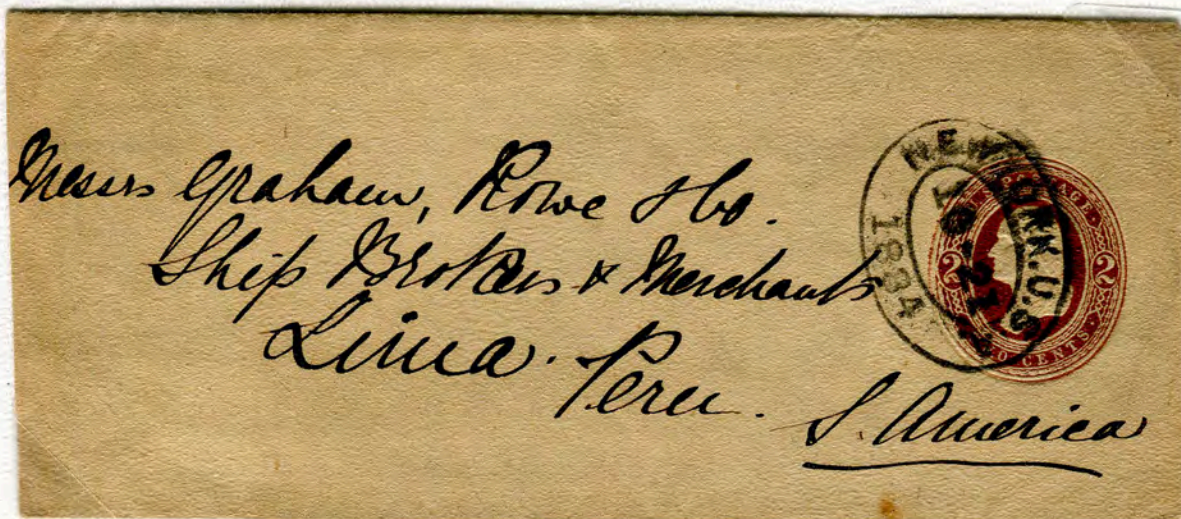 Messrs Graham, Rowe & Co.
Ship Brokers & Merchants
Lima. Peru.
S. America
NEW YORK. U.S.
10-21
1884
POSTAGE
2 2
CENTS